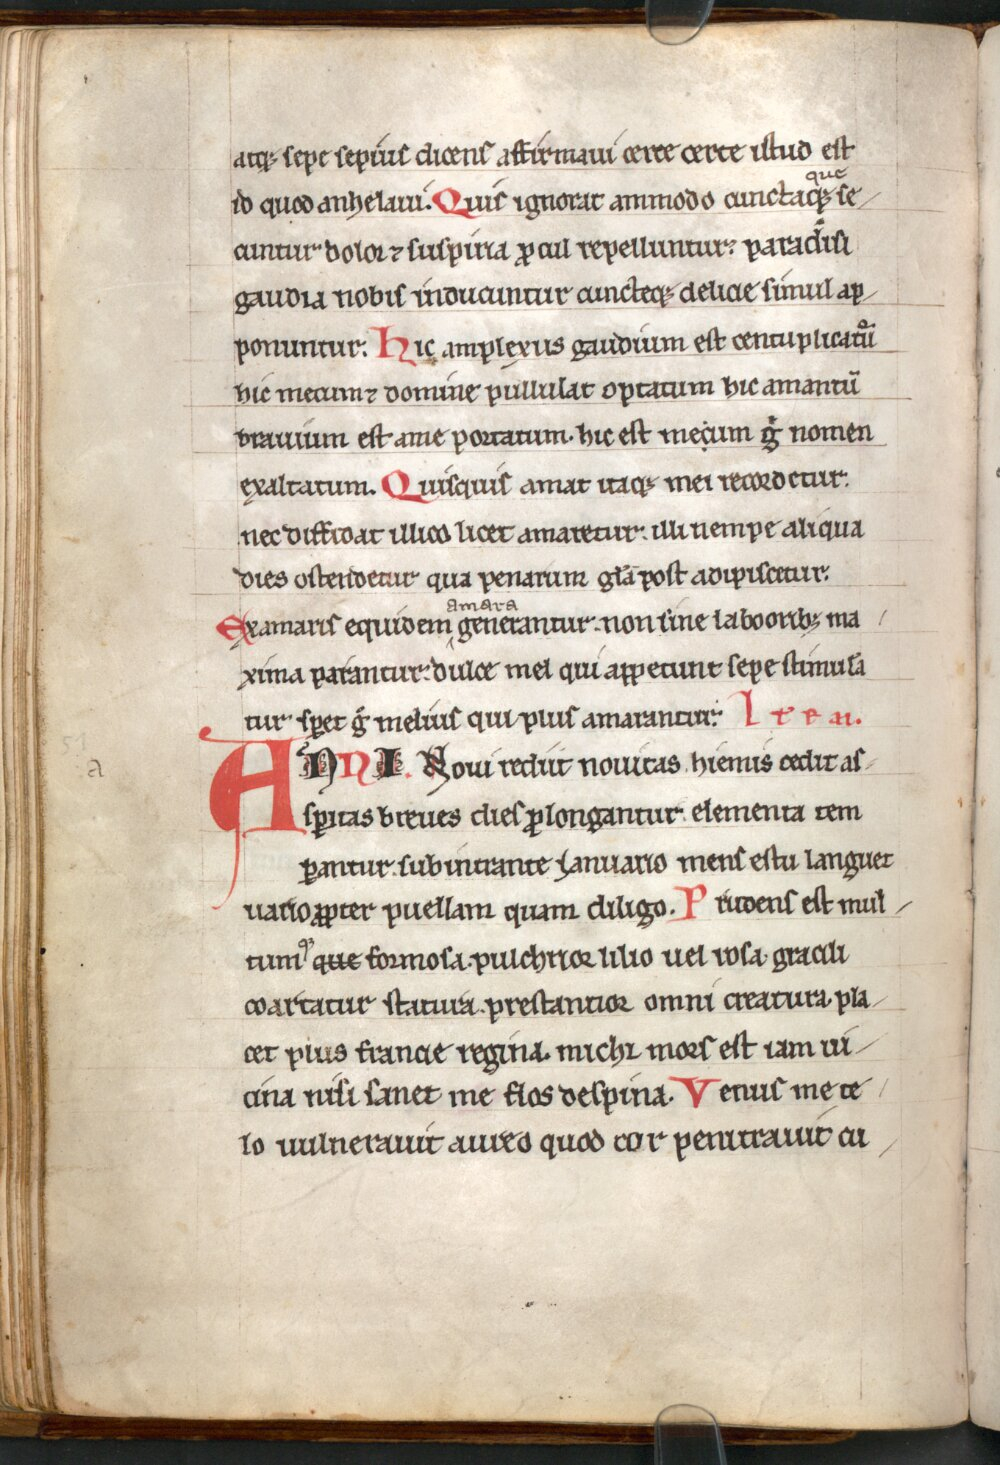 atq; sepe sepius dicens affirmaui certe certe istud est
que
id quod anhelaui. Quis ignorat ammodo cunctaq; se⸗
cuntur dolor ⁊ suspiria ꝓcul repelluntur? paradisi
gaudia nobis inducuntur cuncteq; delicie simul ap⸗
ponuntur. Hic amplexus gaudium est centuplicatū
hic mecum ⁊ domine pullulat optatum hic amantū
brauium est a me portatum. hic est mecum gͥ nomen
exaltatum. Quisquis amat itaq; mei recordetur.
nec diffidat illico licet amaretur. illi nempe aliqua
dies ostendetur qua penarum gl̄a post adipiscetur.
amara
Ex amaris equidem generantur. non sine laboribꝫ ma
xima parantur. dulce mel qui appetunt sepe stimula
tur sꝑet gͥ melius qui plus amarantur. Item.
51
a
ANNI. Noui rediit nouitas. hiemis cedit as⸗
ꝑitas breues dies ꝓlongantur. elementa tem
ꝑantur. subintrante Ianuario mens estu languet
uario ꝓpter puellam quam diligo. Prudens est mul⸗
tumqͣ que formosa. pulchrior lilio uel rosa. gracili
coartatur statura. prestantior omni creatura. pla⸗
cet plus francie regina. michi mors est iam ui⸗
cina nisi sanet me flos de spina. Venus me te
lo uulnerauit aureo quod cor penitrauit cu